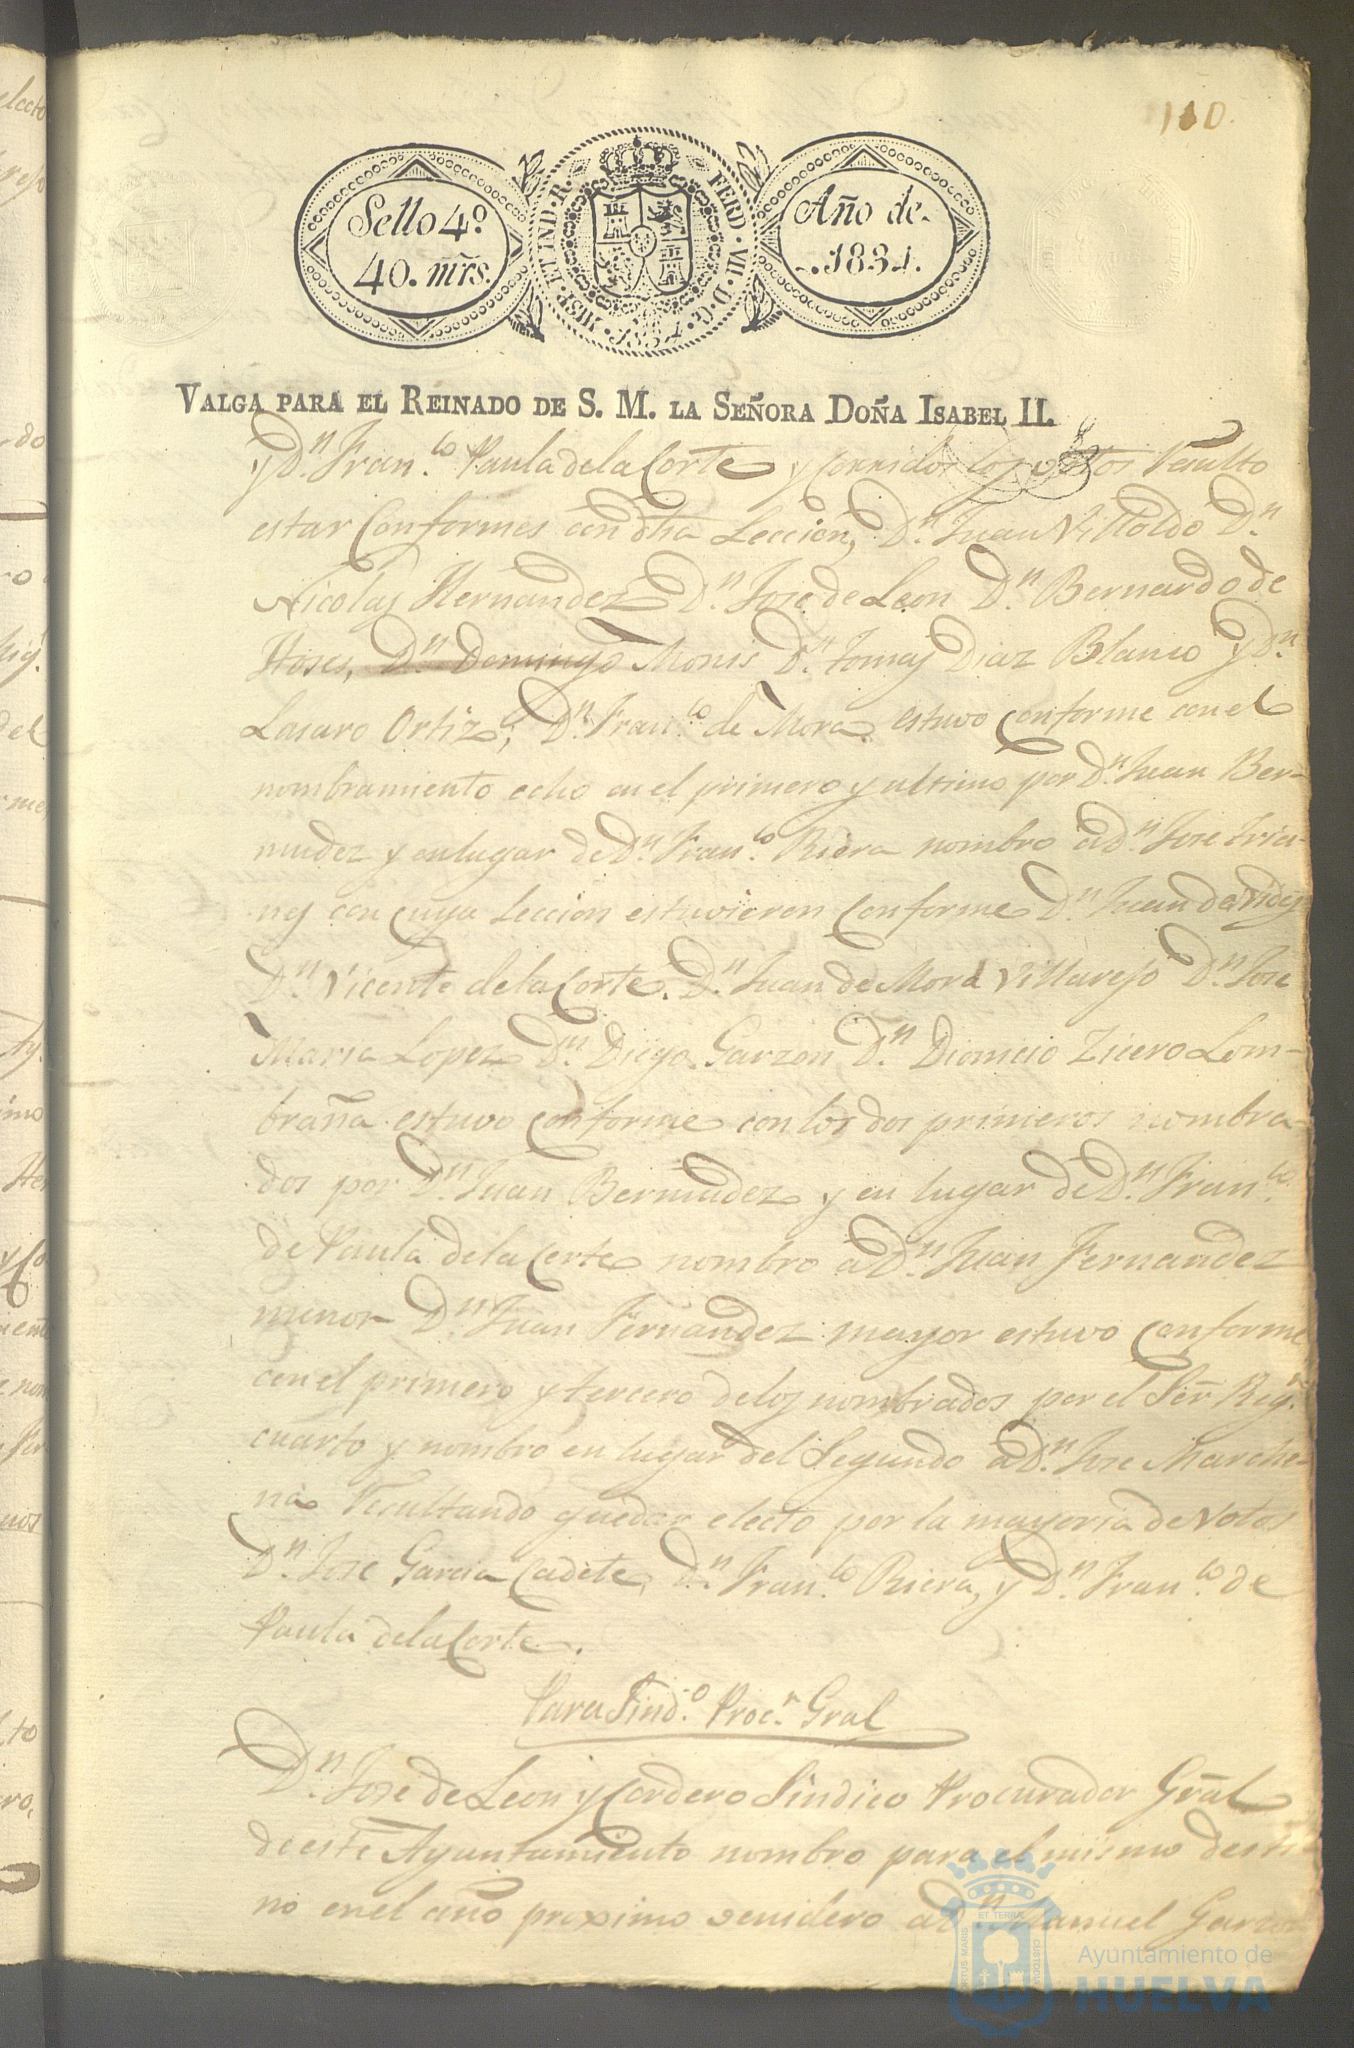 110.
Sello 4º
40. mrs.
HISP. ET IND. R.
FERD. VII. D. G.
1834
Año de
1834.
VALGA PARA EL REINADO DE S. M. LA SEÑORA DOÑA ISABEL II.
y Dn. Franco. Paula de la Corte y Corridos los votos Resulto
estar Conformes con dha Leccion, Dn. Juan Villoldo Dn.
Nicolas Hernandez Dn. Jose de Leon Dn. Bernardo de
Hoses, Dn. Domingo Monis Dn. Tomas Diaz Blanco y Dn.
Lasaro Ortiz; Dn. Franco. de Mora estuvo conforme con el
nombramiento echo en el primero y ultimo por Dn. Juan Ber-
mudez y en lugar de Dn. Franco. Riera nombro a Dn. Jose Tria-
nes con cuya Leccion estuvieron Conforme Dn. Juan de
Dn. Vicente de la Corte, Dn. Juan de Mora Villarejo Dn. Jose
Maria Lopez Dn. Diego Garzon, Dn. Dionicio Zicero Lom-
braña estuvo conforme con los dos primeros nombra-
dos por Dn. Juan Bermudez y en lugar de Dn. Franco.
de Paula de la Corte nombro a Dn. Juan Fernandez
menor Dn. Juan Fernandez mayor estuvo conforme
con el primero y tercero de los nombrados por el Señr Regr.
cuarto y nombro en lugar del Segundo a Dn. Jose Marche-
na Resultando quedar electo por la mayoria de Votos
Dn. Jose Garcia Cadete, Dn. Franco. Riera, y Dn. Franco. de
Paula de la Corte.
Para Sindo. Procr. Gral
Dn. Jose de Leon y Cordero Sindico Procurador Grãl
de este Ayuntamiento nombro para el mismo desti-
no en el año proximo venidero a Dn. Manuel Garzon
PORTUS MARIS
ET TERRAE
CUSTODIA
Ayuntamiento de
HUELVA